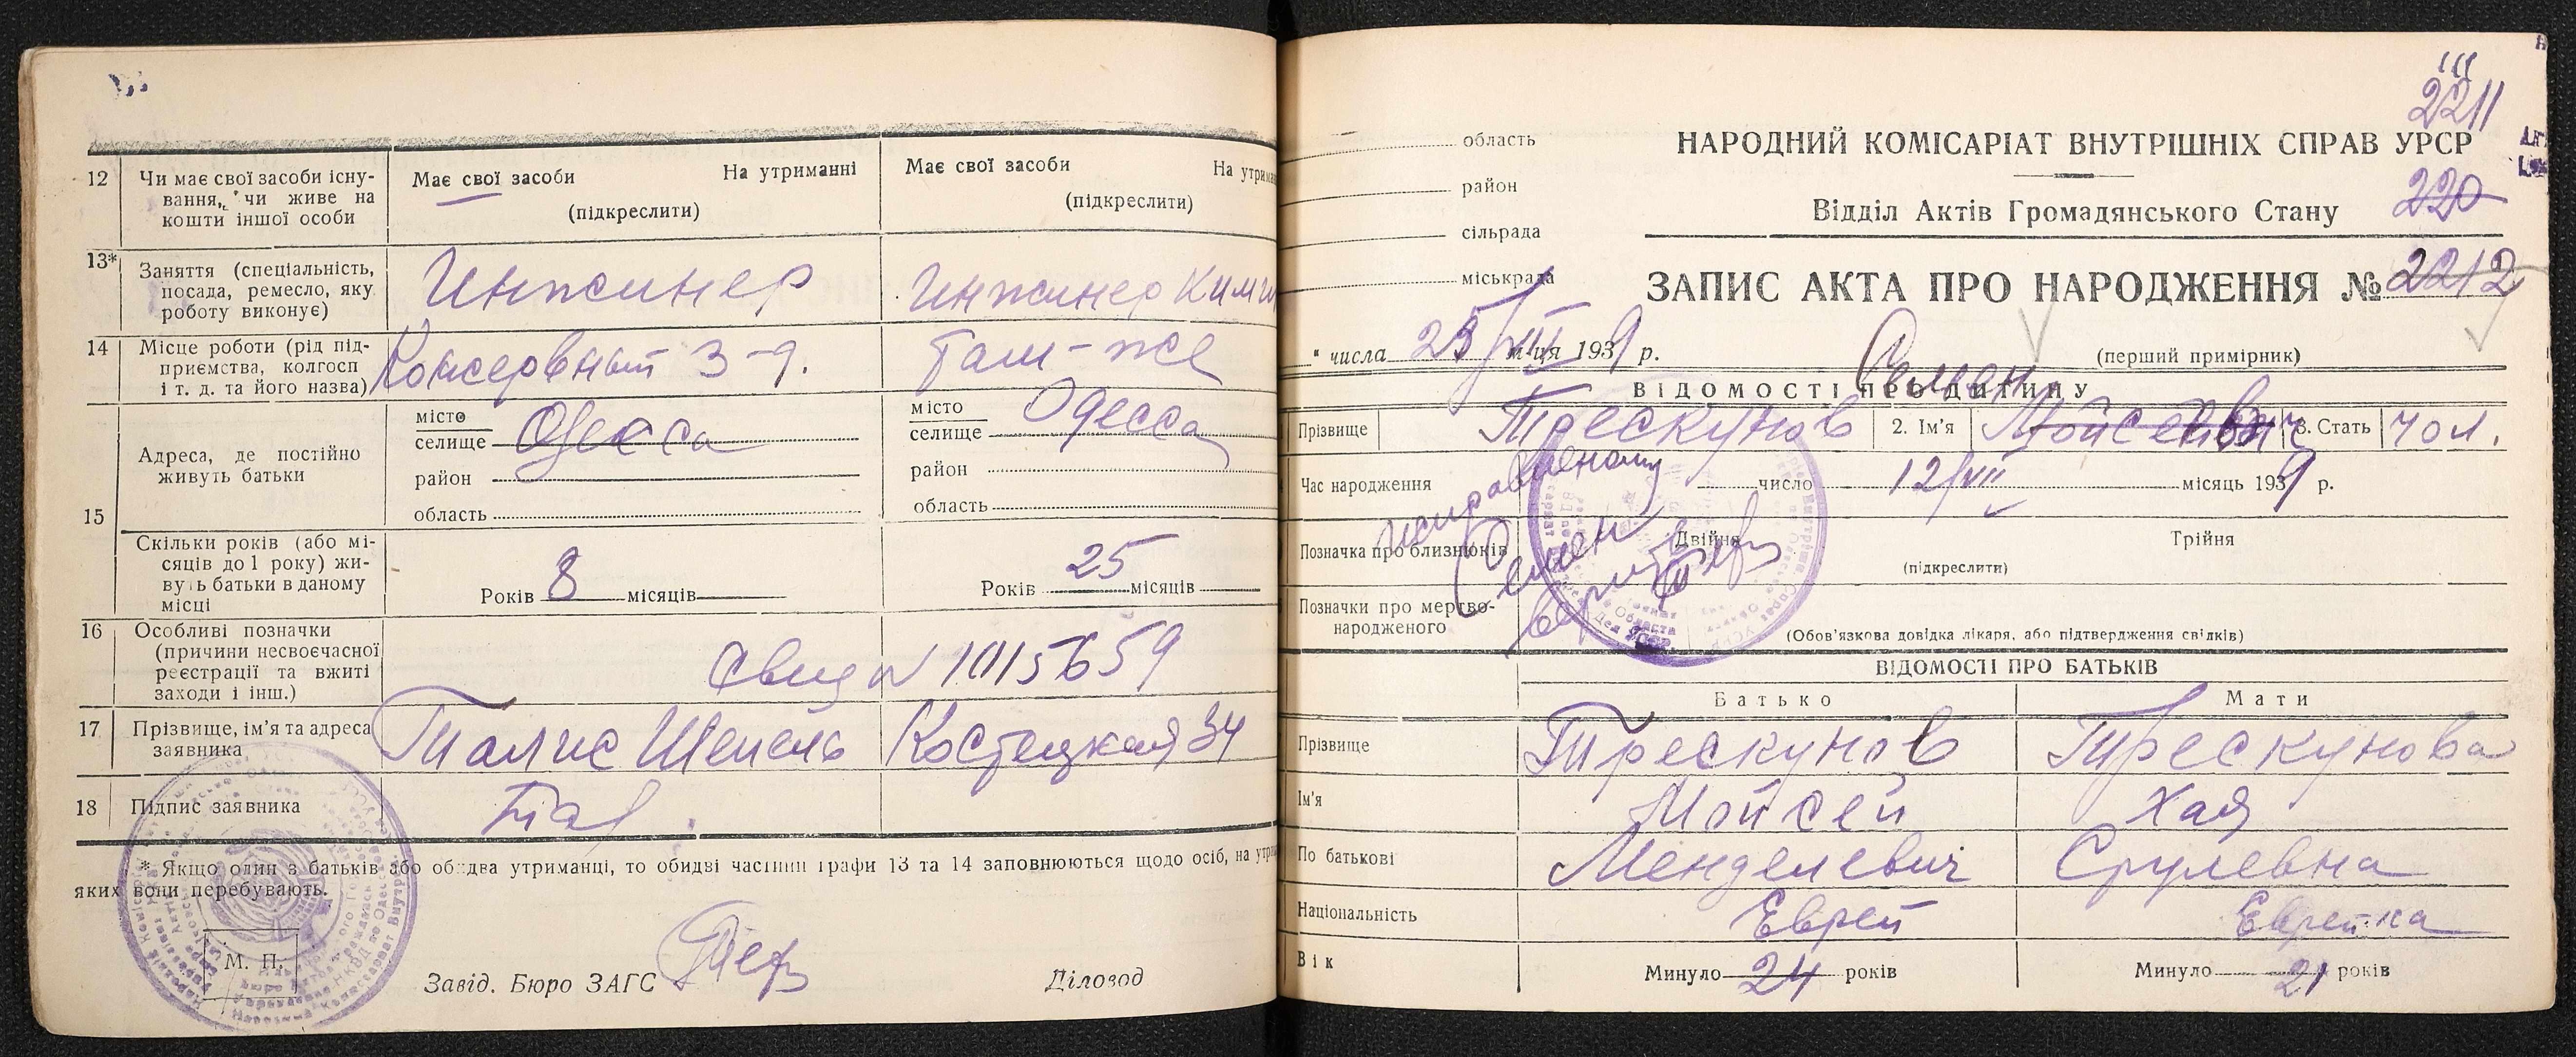 12 Чи має свої засоби існу-
вання, чи живе на
кошти іншої особи
Має свої засоби На утриманні
(підкреслити)
Має свої засоби На утрима
(підкреслити)
13* Заняття (спеціальність,
посада, ремесло, яку
роботу виконує)
Инжинер
Инжинер
14 Місце роботи (рід під-
приємства, колгосп
і т. д. та його назва)
Консервный З-д.
Там-же
15 Адреса, де постійно
живуть батьки
місто
селище Одесса
район
область
місто
селище Одесса
район
область
Скільки років (або мі-
сяців до 1 року) жи-
вуть батьки в даному
місці
Років 8 місяців
Років 25 місяців
16 Особливі позначки
(причини несвоєчасної
реєстрації та вжиті
заходи і інш.)
Свид N 1015659
17 Прізвище, ім'я та адреса
заявника
Талис Шейель Костецкая 34
18 Підпис заявника
Тал.
* Якщо один з батьків або обидва утриманці, то обидві частини графи 13 та 14 заповнюються щодо осіб, на утри
яких вони перебувають.
М. П.
Завід. Бюро ЗАГС
Діловод
2211
область
район
сільрада
міськрада
НАРОДНИЙ КОМІСАРІАТ ВНУТРІШНІХ СПРАВ УРСР
220
Відділ Актів Громадянського Стану
ЗАПИС АКТА ПРО НАРОДЖЕННЯ № 2212
" числа 25/VIII м-ця 1939 р.
(перший примірник)
Семен
ВІДОМОСТІ ПРО ДИТИНУ
Прізвище Трескунов 2. Ім'я Мойсеевич 3. Стать чол.
Час народження число 12/VIII місяць 1939 р.
исправленому
Семен
верить
Позначка про близнюків Двійня Трійня
(підкреслити)
Позначки про мертво-
народженого
(Обов'язкова довідка лікаря, або підтвердження свідків)
ВІДОМОСТІ ПРО БАТЬКІВ
Батько Мати
Прізвище Трескунов Трескунова
Ім'я Мойсей Хая
По батькові Менделевич Срулевна
Національність Еврей Еврейка
Вік Минуло 24 років Минуло 21 років